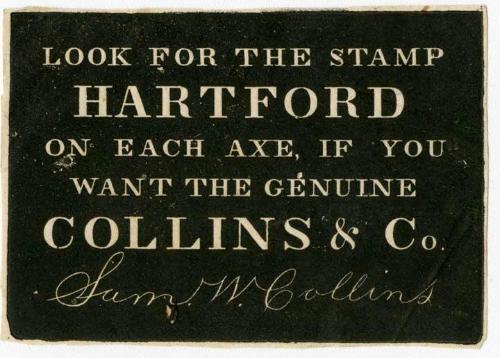 LOOK FOR THE STAMP
HARTFORD
ON EACH AXE, IF YOU
WANT THE GENUINE
COLLINS & Co.
Sam W. Collins